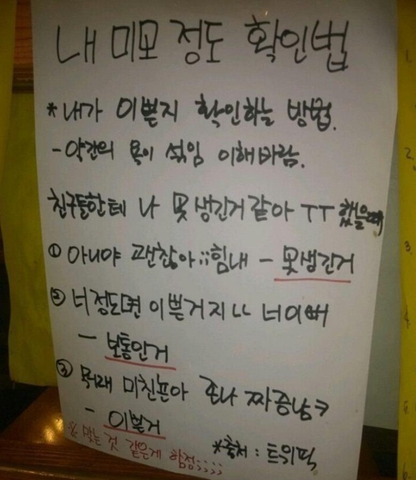 내 미모 정도 확인법
*내가 이쁜지 확인하는 방법.
-약간의 욕이 섞임 이해바람.
친구들한테 나 못생긴거같아 ㅜㅜ 했을때
① 아니야 괜찮아;;힘내 - 못생긴거
② 너정도면 이쁜거지ㄴㄴ 너이뻐
- 보통인거
③ 뭐래 미친년아 존나 짜증남ㅋ
- 이쁜거
※ 맞는 것 같은게 함정;;;;
*출처 : 트위떡